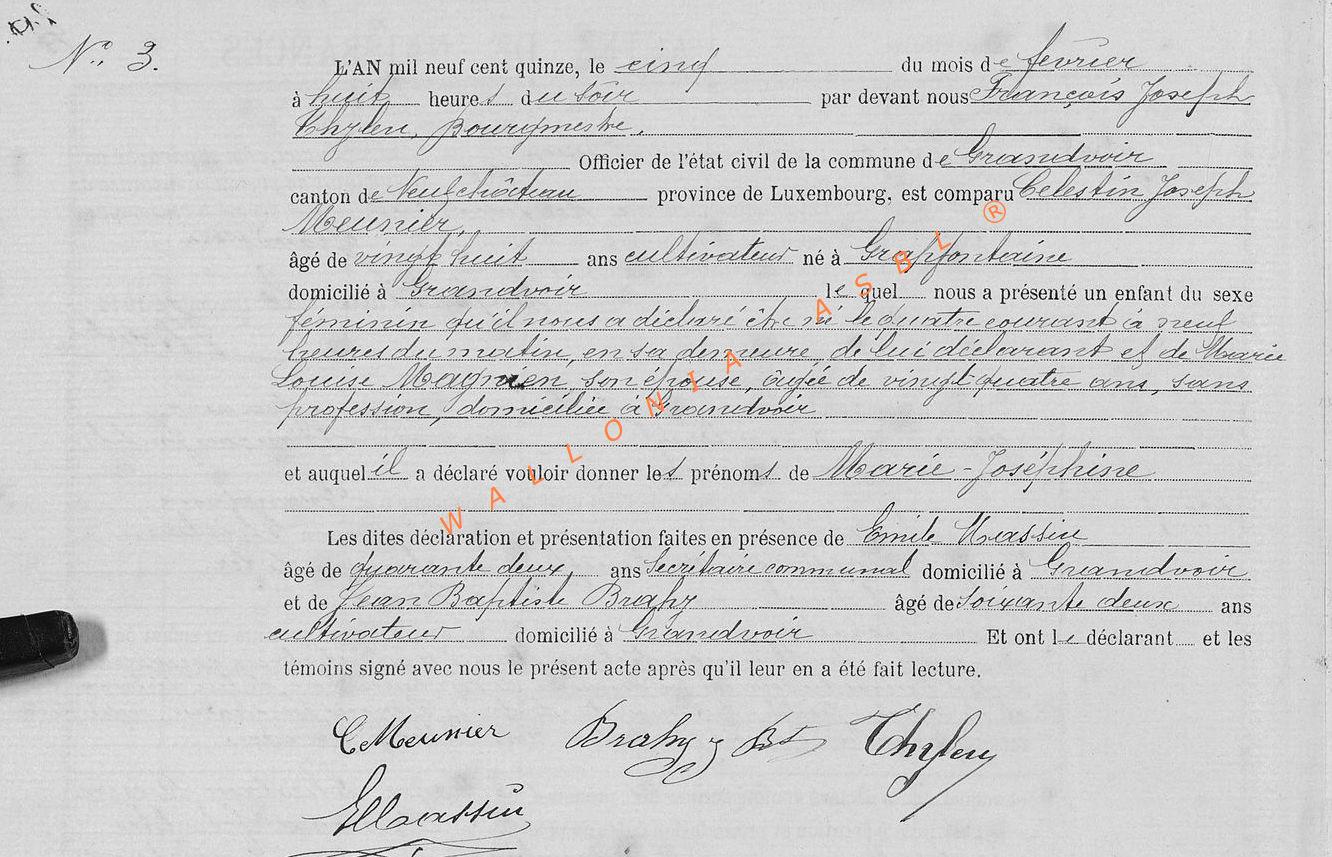 N° 3.
L'AN mil neuf cent quinze, le cinq du mois de février
à huit heures du soir par devant nous François Joseph
Thylen, Bourgmestre,
Officier de l'état civil de la commune de Grandvoir
canton de Neufchâteau province de Luxembourg, est comparu Celestin Joseph
Meunier,
âgé de vingt huit ans cultivateur né à Grapfontaine
domicilié à Grandvoir lequel nous a présenté un enfant du sexe
féminin qu'il nous a déclaré être né le quatre courant à neuf
heures du matin, en sa demeure, de lui déclarant et de Marie
Louise Magnien, son épouse, âgée de vingt quatre ans, sans
profession, domiciliée à Grandvoir
et auquel il a déclaré vouloir donner les prénoms de Marie-Joséphine
Les dites déclaration et présentation faites en présence de Emile Massin
âgé de quarante deux, ans Secrétaire communal domicilié à Grandvoir
et de Jean Baptiste Brahy âgé de soixante deux ans
cultivateur domicilié à Grandvoir Et ont le déclarant et les
témoins signé avec nous le présent acte après qu'il leur en a été fait lecture.
C Meunier Brahy J Bt Thylen
E Massin
WALLONIA ASBL ®